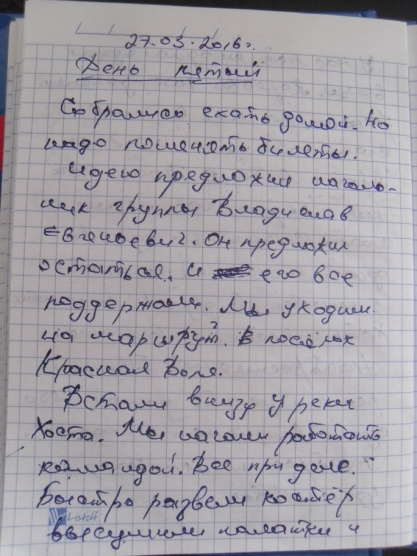 27.03.2016г.
День пятый
Собрались ехать домой. Но
надо поменять билеты.
Идею предложил началь-
ник группы Владислав
Евгеньевич. Он предложил
остаться. И его все
поддержали. Мы уходим
на маршрут. В посёлок
Красная Воля.
Встали внизу у реки
Хоста. Мы начали работать
командой. Все при деле.
Быстро развели костёр
высушили палатки и